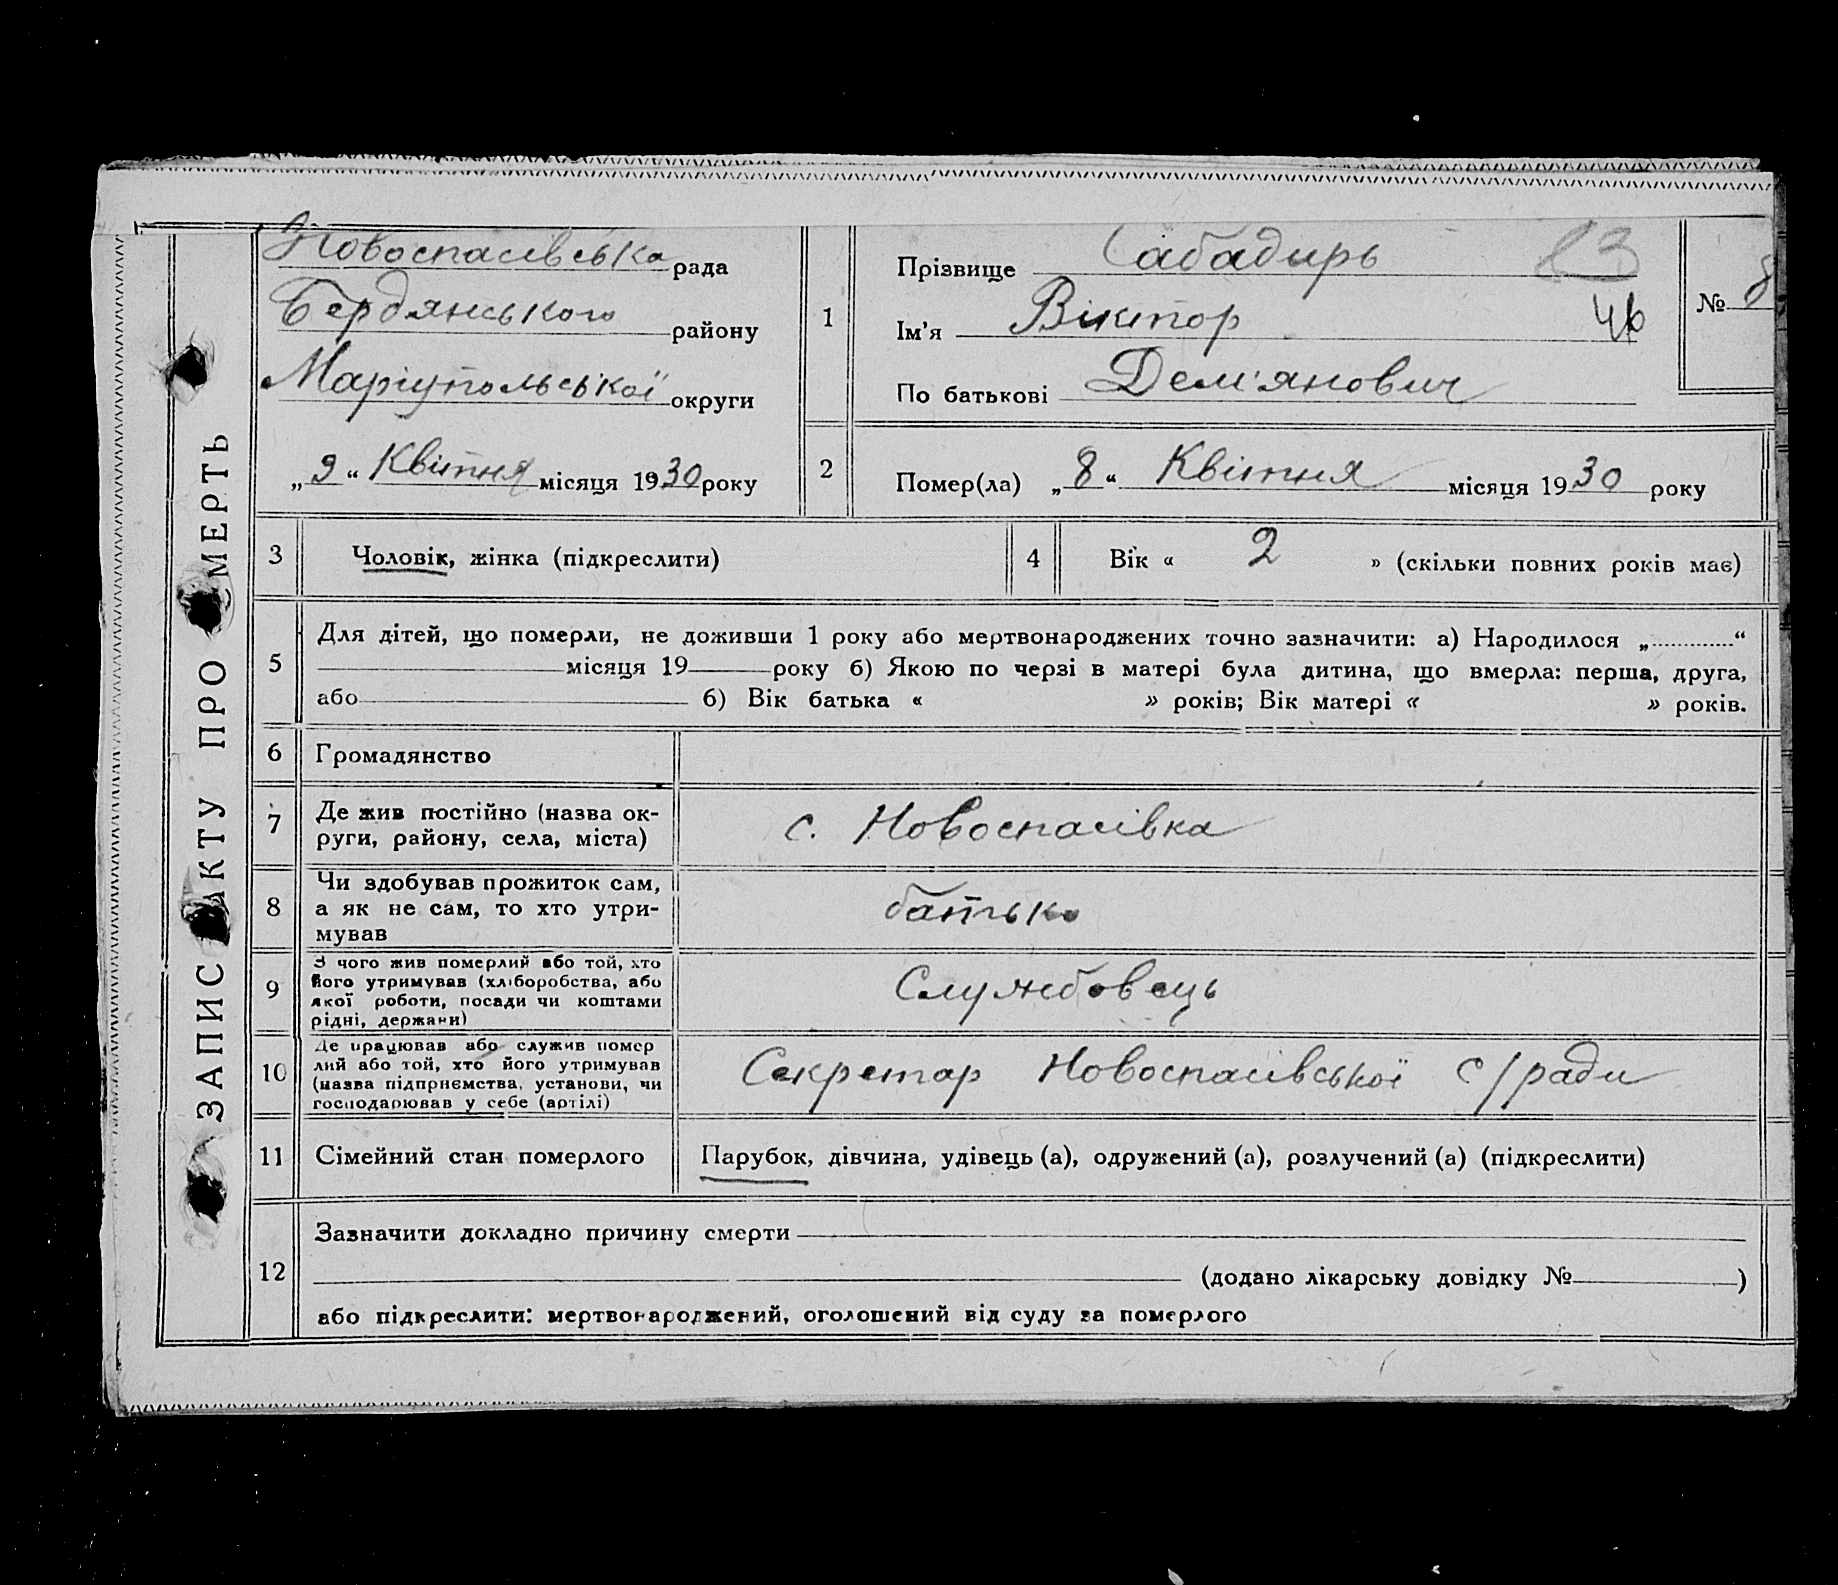 ЗАПИС АКТУ ПРО СМЕРТЬ
Новоспасівська рада
Бердянського району
Маріупольської округи
„9“ Квітня місяця 1930 року
1
Прізвище Сабадирь
Ім'я Віктор
46
По батькові Дем'янович
№ 8
2
Помер(ла) „8“ Квітня місяця 1930 року
3 Чоловік, жінка (підкреслити)
4 Вік « 2 » (скільки повних років має)
5 Для дітей, що померли, не доживши 1 року або мертвонароджених точно зазначити: а) Народилося „ “
місяця 19 року б) Якою по черзі в матері була дитина, що вмерла: перша, друга,
або б) Вік батька « » років; Вік матері « » років.
6 Громадянство
7 Де жив постійно (назва ок-
руги, району, села, міста)
с. Новоспасівка
8 Чи здобував прожиток сам,
а як не сам, то хто утри-
мував
батько
9 З чого жив померлий або той, хто
його утримував (хліборобства, або
якої роботи, посади чи коштами
рідні, держави)
Службовець
10 Де працював або служив помер
лий або той, хто його утримував
(назва підприємства, установи, чи
господарював у себе (артілі)
Секретар Новоспасівської с/ради
11 Сімейний стан померлого
Парубок, дівчина, удівець (а), одружений (а), розлучений (а) (підкреслити)
12 Зазначити докладно причину смерти
(додано лікарську довідку № )
або підкреслити: мертвонароджений, оголошений від суду за померлого